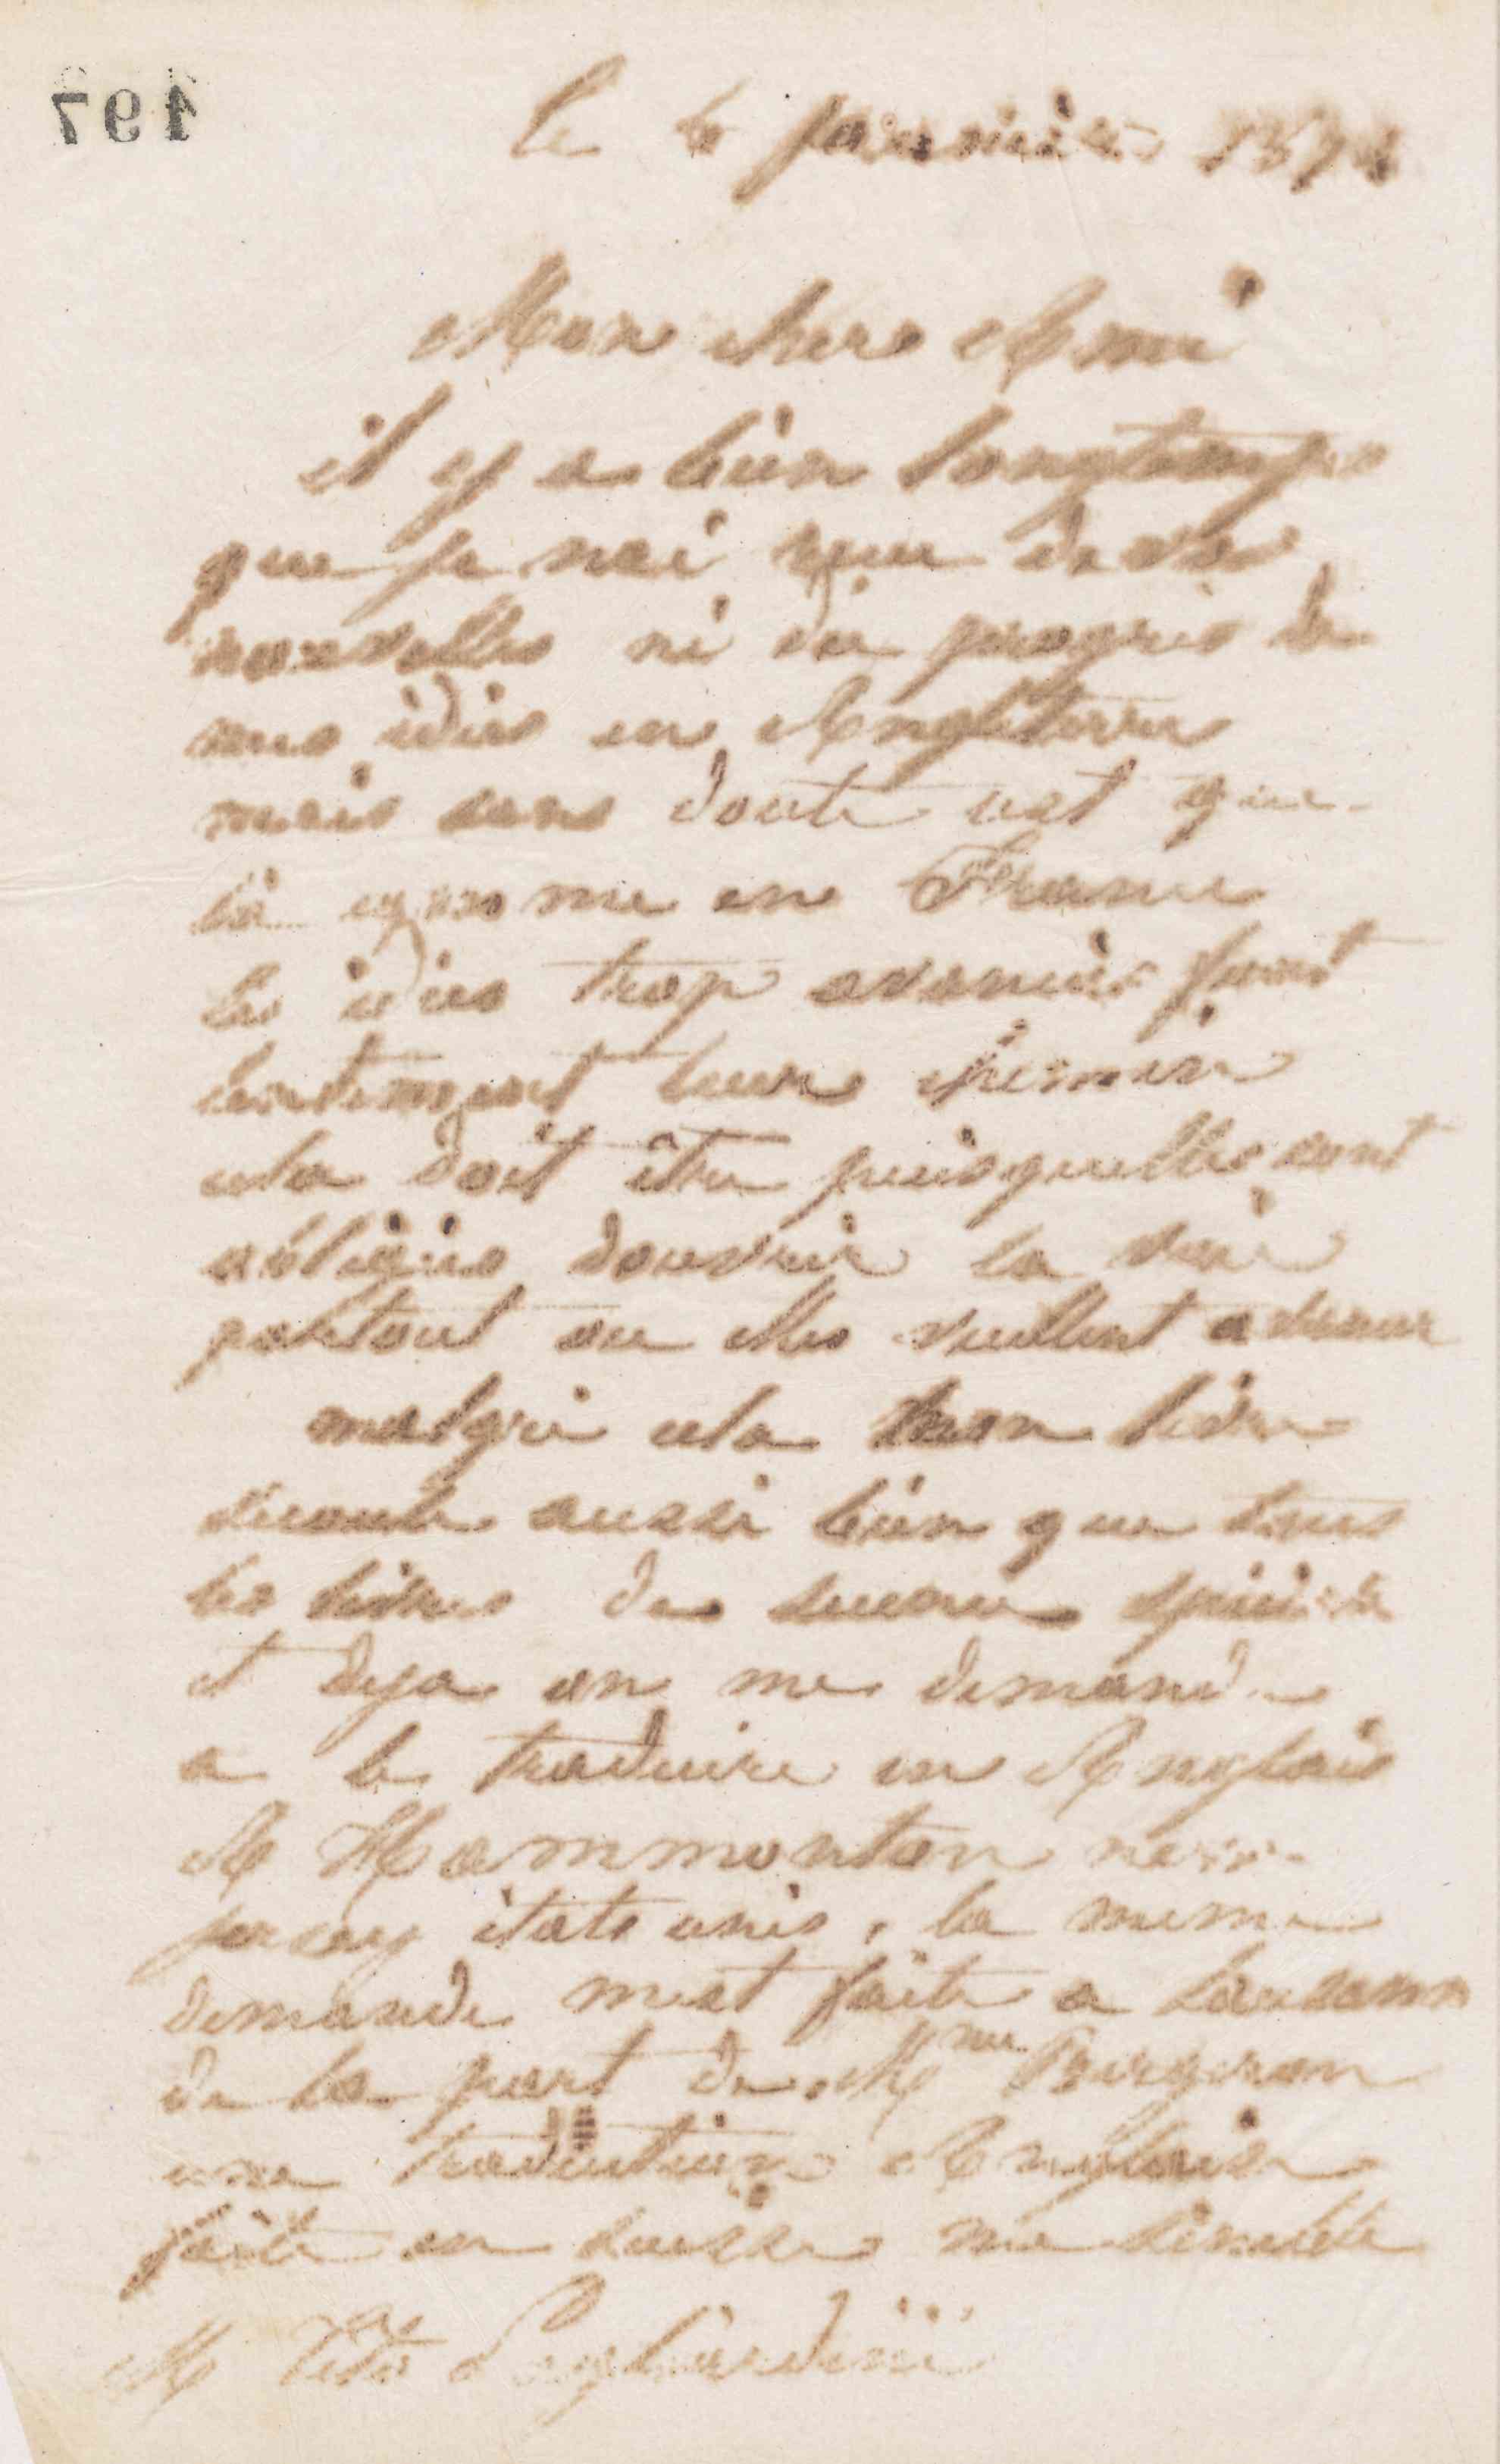 197
le 6 janvier 187
Mon cher Ami
il y a bien longtemps
que je nai reçu de vos
nouvelles ni du progrès de
nos idées en Angleterre
mais sans doute cest que
là comme en France
les idées trop avancées font
lentement leur chemin
cela doit être puisquelles sont
obligées douvrir la voie
partout ou elles veullent
malgré cela mon livre
aussi bien que tous
les livres de science spirite
et deja on me demande
a le traduire en Anglais
A Hammonton new
jersey états unis, la meme
demande mest faite a Lausanne
de la part de Mme Bergeron
une traduction Anglaise
faite en Suisse me semble
M Tito